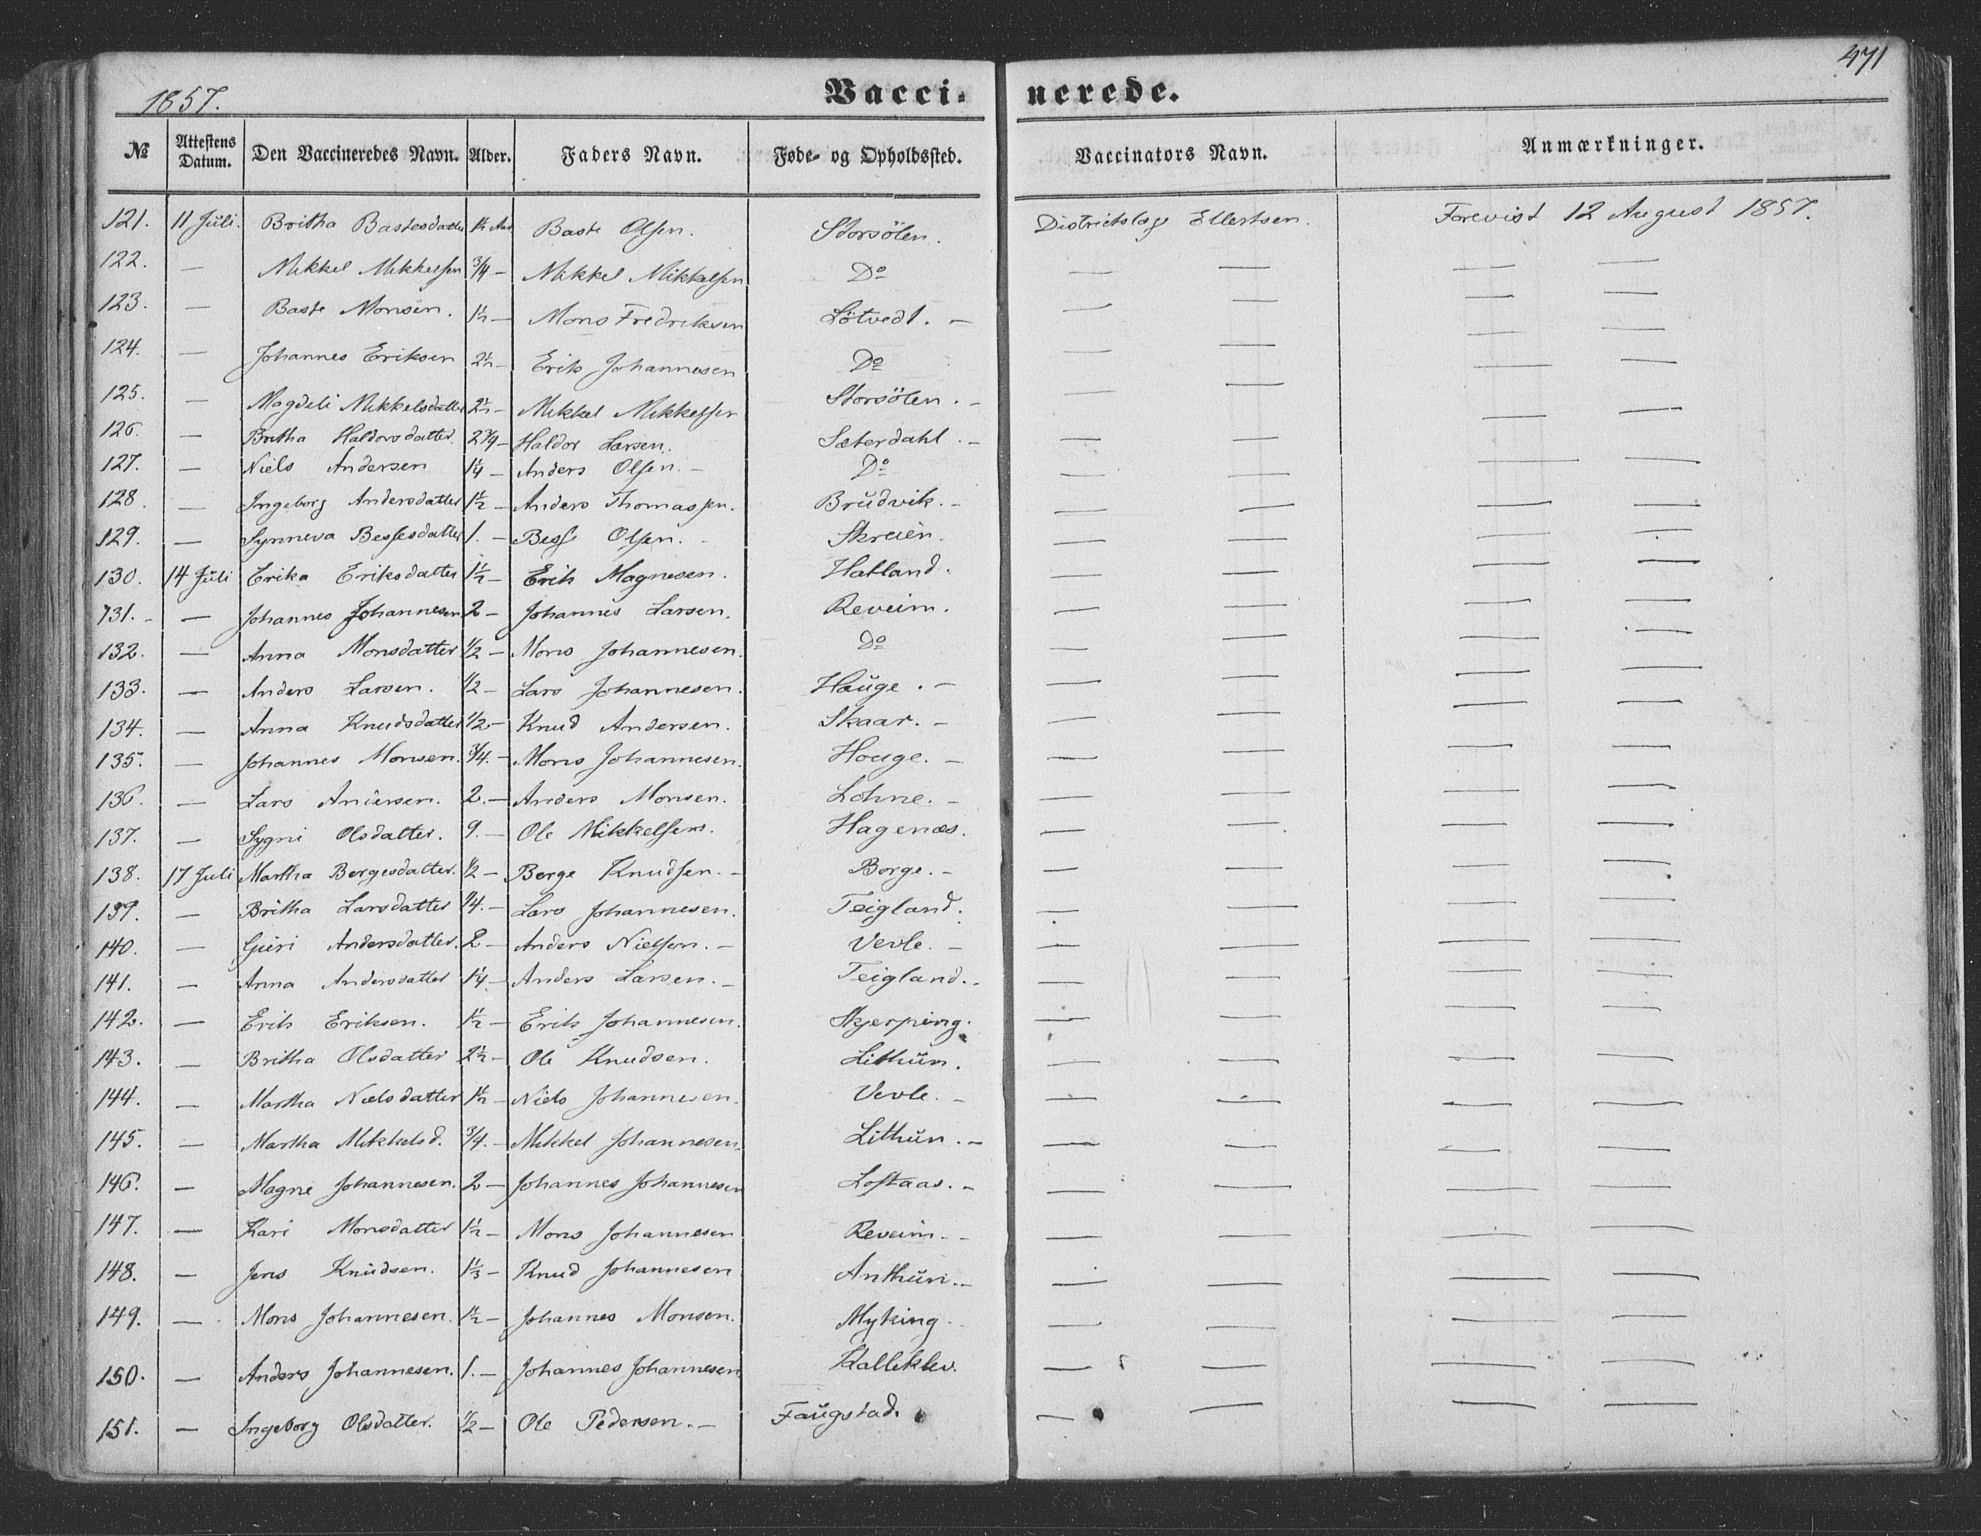 471
1857.
Vacci- nerede.
№ Attestens Datum. Den Vaccineredes Navn. Alder. Faders Navn. Føde- og Opholdssted. Vaccinators Navn. Anmærkninger.
121. 11 Juli. Britha Bastesdatter 1½ Aar Baste Olsen. Storsölen. Districtslæg Ellertsen. Forevist 12 August 1857.
122. — Mikkel Mikkelsen 3/4 — Mikkel Mikkelsen Do — — — —
123. — Baste Monsen. 1½ — Mons Fredriksen Lötvedt. — — — — —
124. — Johannes Eriksen 2½ — Erik Johannesen Do — — — —
125. — Magdeli Mikkelsdatter 2½ — Mikkel Mikkelsen Storsölen. — — — — —
126. — Britha Haldorsdatter. 2 3/4 — Haldor Larsen. Sæterdahl. — — — — —
127. — Niels Andersen 1¼ — Anders Olsen. — Do — — — —
128. — Ingeborg Andersdatter 1½ — Anders Thomassen. Brudvik. — — — — —
129. — Synneva Bessesdatter 1. — Besse Olsen. Skreien. — — — —
130. 14 Juli Erika Eriksdatter 1½ — Erik Magnesen. Hatland. — — — —
131. — Johannes Johannesen 2 — Johannes Larsen. Reveim. — — — —
132. — Anna Monsdatter 1/2 — Mons Johannesen. Do — — — —
133. — Anders Larsen. 1/2 — Lars Johannesen. Hauge. — — — — —
134. — Anna Knudsdatter 1/2 — Knud Andersen. Skaar. — — — — —
135. — Johannes Monsen. 3/4. — Mons Johannesen. Houge. — — — — —
136. — Lars Andersen. 2. — Anders Monsen. Lohne. — — — — —
137. — Sygni Olsdatter. 9. — Ole Mikkelsen. Hagenæs. — — — —
138. 17 Juli Martha Bergesdatter. 1/2 — Berge Knudsen. — Borge. — — — — —
139. — Britha Larsdatter 1/4. — Lars Johannesen. Teigland. — — — —
140. — Guri Andersdatter. 2 — Anders Nielsen. — Vevle. — — — — —
141. — Anna Andersdatter 1¼ — Anders Larsen. — Teigland. — — — — —
142. — Erik Eriksen. 1½ — Erik Johannesen. Skjerping. — — — —
143. — Britha Olsdatter 2½ — Ole Knudsen. Lithun. — — — —
144. — Martha Nielsdatter 1½ — Niels Johannesen. Vevle. — — — — —
145. — Martha Mikkelsd. 3/4. — Mikkel Johannesen. Lithun. — — — — —
146. — Magne Johannesen. 2 — Johannes Johannesen Loftaas. — — — — —
147. — Kari Monsdatter 1½ — Mons Johannesen Reveim. — — — — —
148. — Jens Knudsen. 1⅓ — Knud Johannesen Anthun. — — — — —
149. — Mons Johannesen. 1½ — Johannes Monsen. Myking — — — —
150. — Anders Johannesen. 1. — Johannes Johannesen Kalleklev. — — — —
151. — Ingeborg Olsdatter. 1/2 — Ole Pedersen. — Faugstad. — — — —